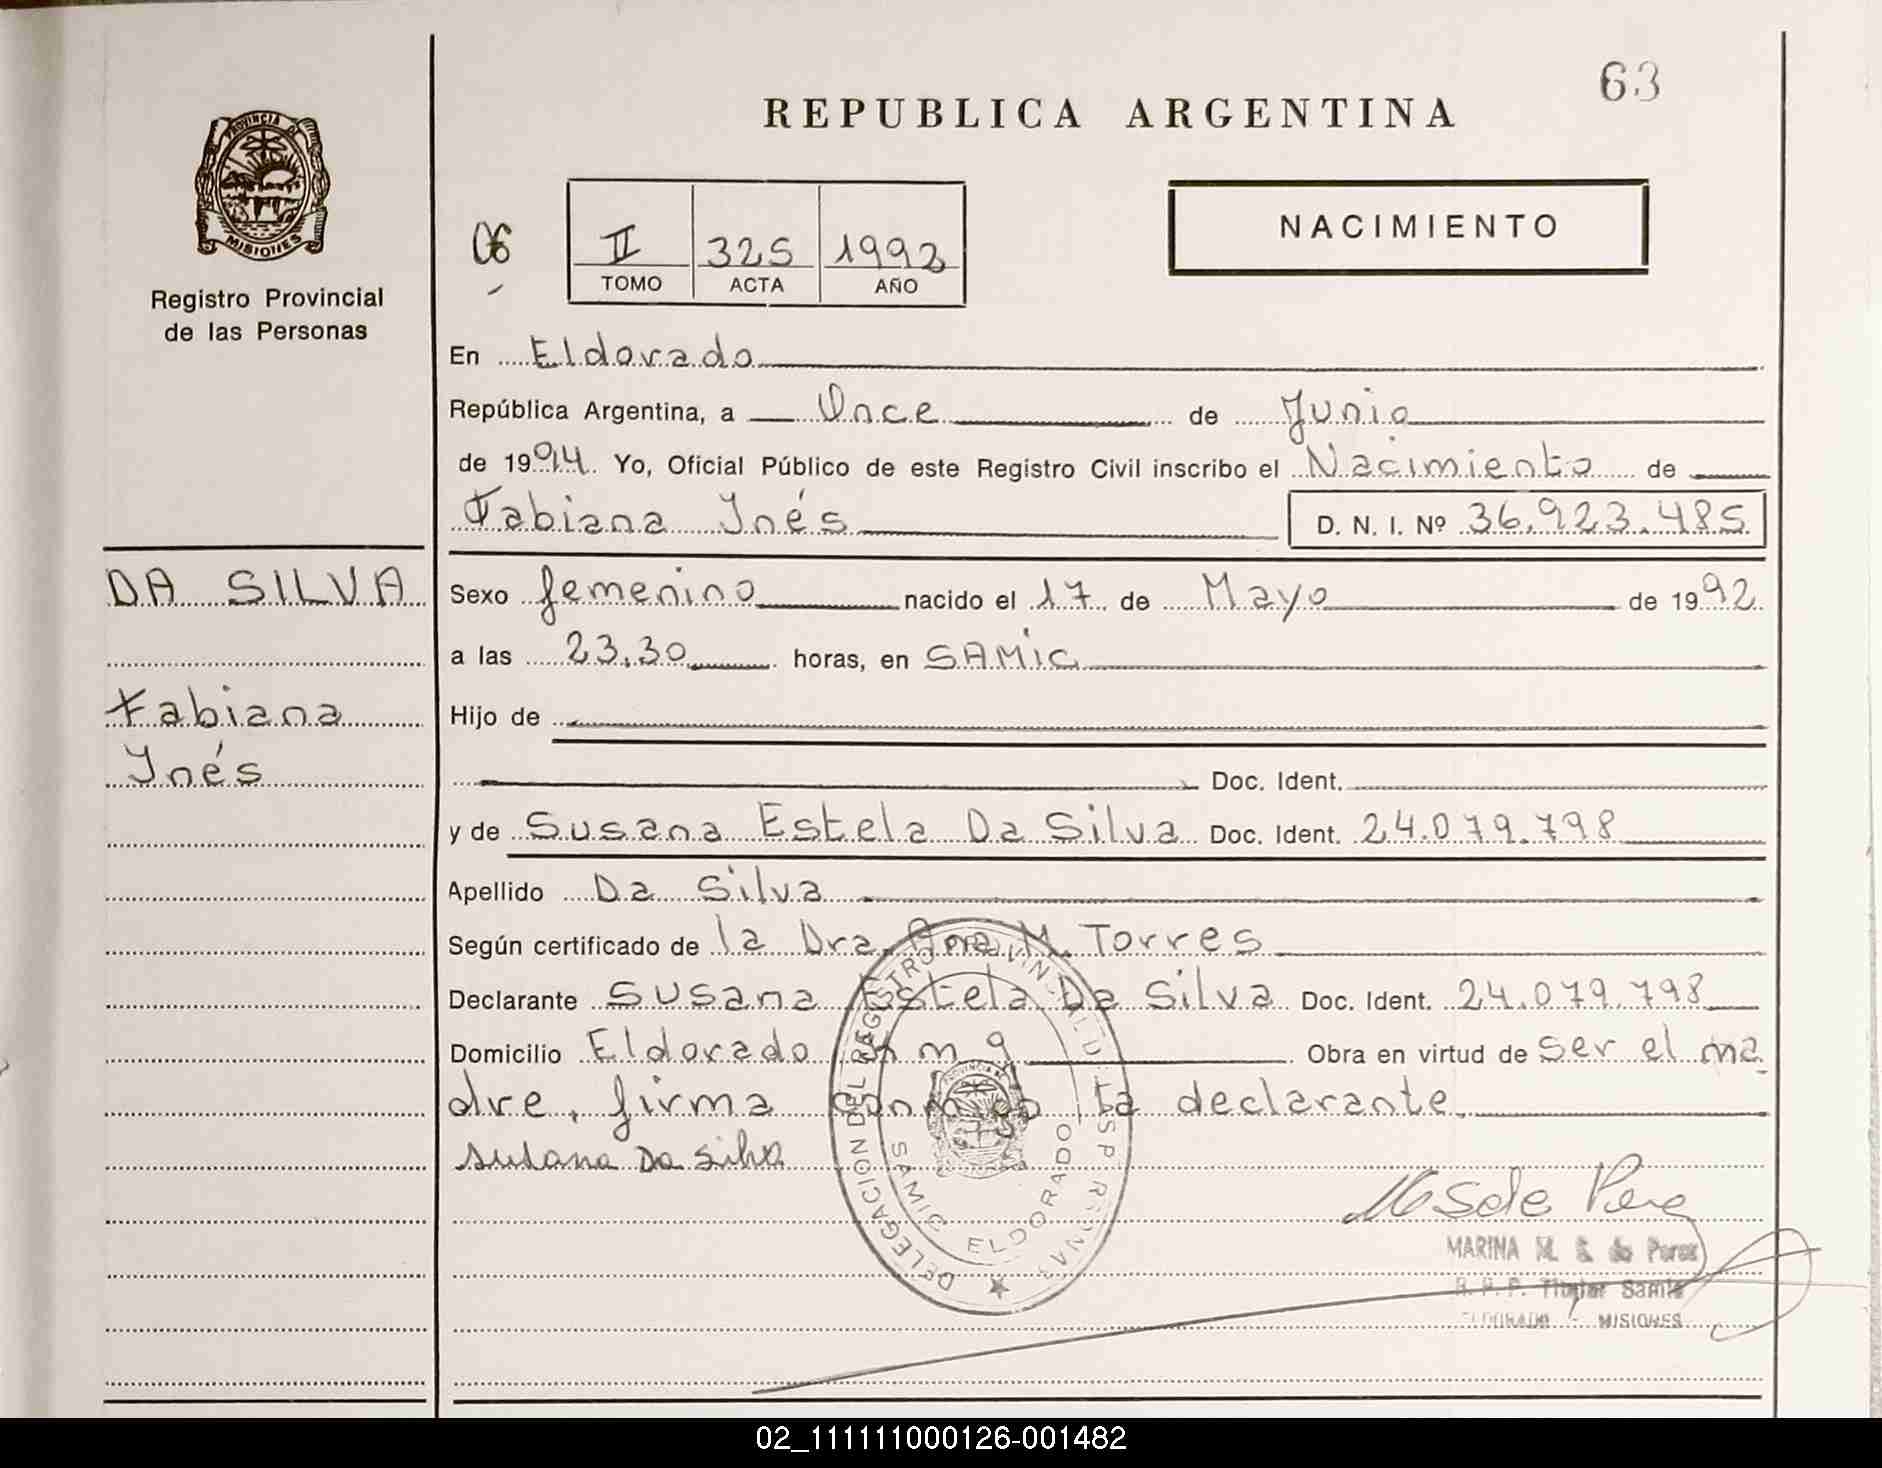 63
REPUBLICA ARGENTINA
PROVINCIA DE
MISIONES
Registro Provincial
de las Personas
06
II 325 1992
TOMO ACTA AÑO
NACIMIENTO
En Eldorado
República Argentina, a Once de Junio
de 1994. Yo, Oficial Público de este Registro Civil inscribo el Nacimiento de
Fabiana Inés D. N. I. Nº 36.923.485
DA SILVA
Fabiana
Inés
Sexo femenino nacido el 17 de Mayo de 1992
a las 23.30 horas, en SAMIC
Hijo de
Doc. Ident.
y de Susana Estela Da Silva Doc. Ident. 24.079.798
Apellido Da Silva
Según certificado de la Dra. Ana M. Torres
Declarante Susana Estela Da Silva Doc. Ident. 24.079.798
Domicilio Eldorado Obra en virtud de ser el ma
dre, firma conmigo la declarante.
Susana Da Silva
DELEGACION DEL REGISTRO PROVINCIAL DE LAS PERSONAS
SAMIC ELDORADO
MARINA M. S. de Perez
Titular Samic
ELDORADO - MISIONES
02_111111000126-001482